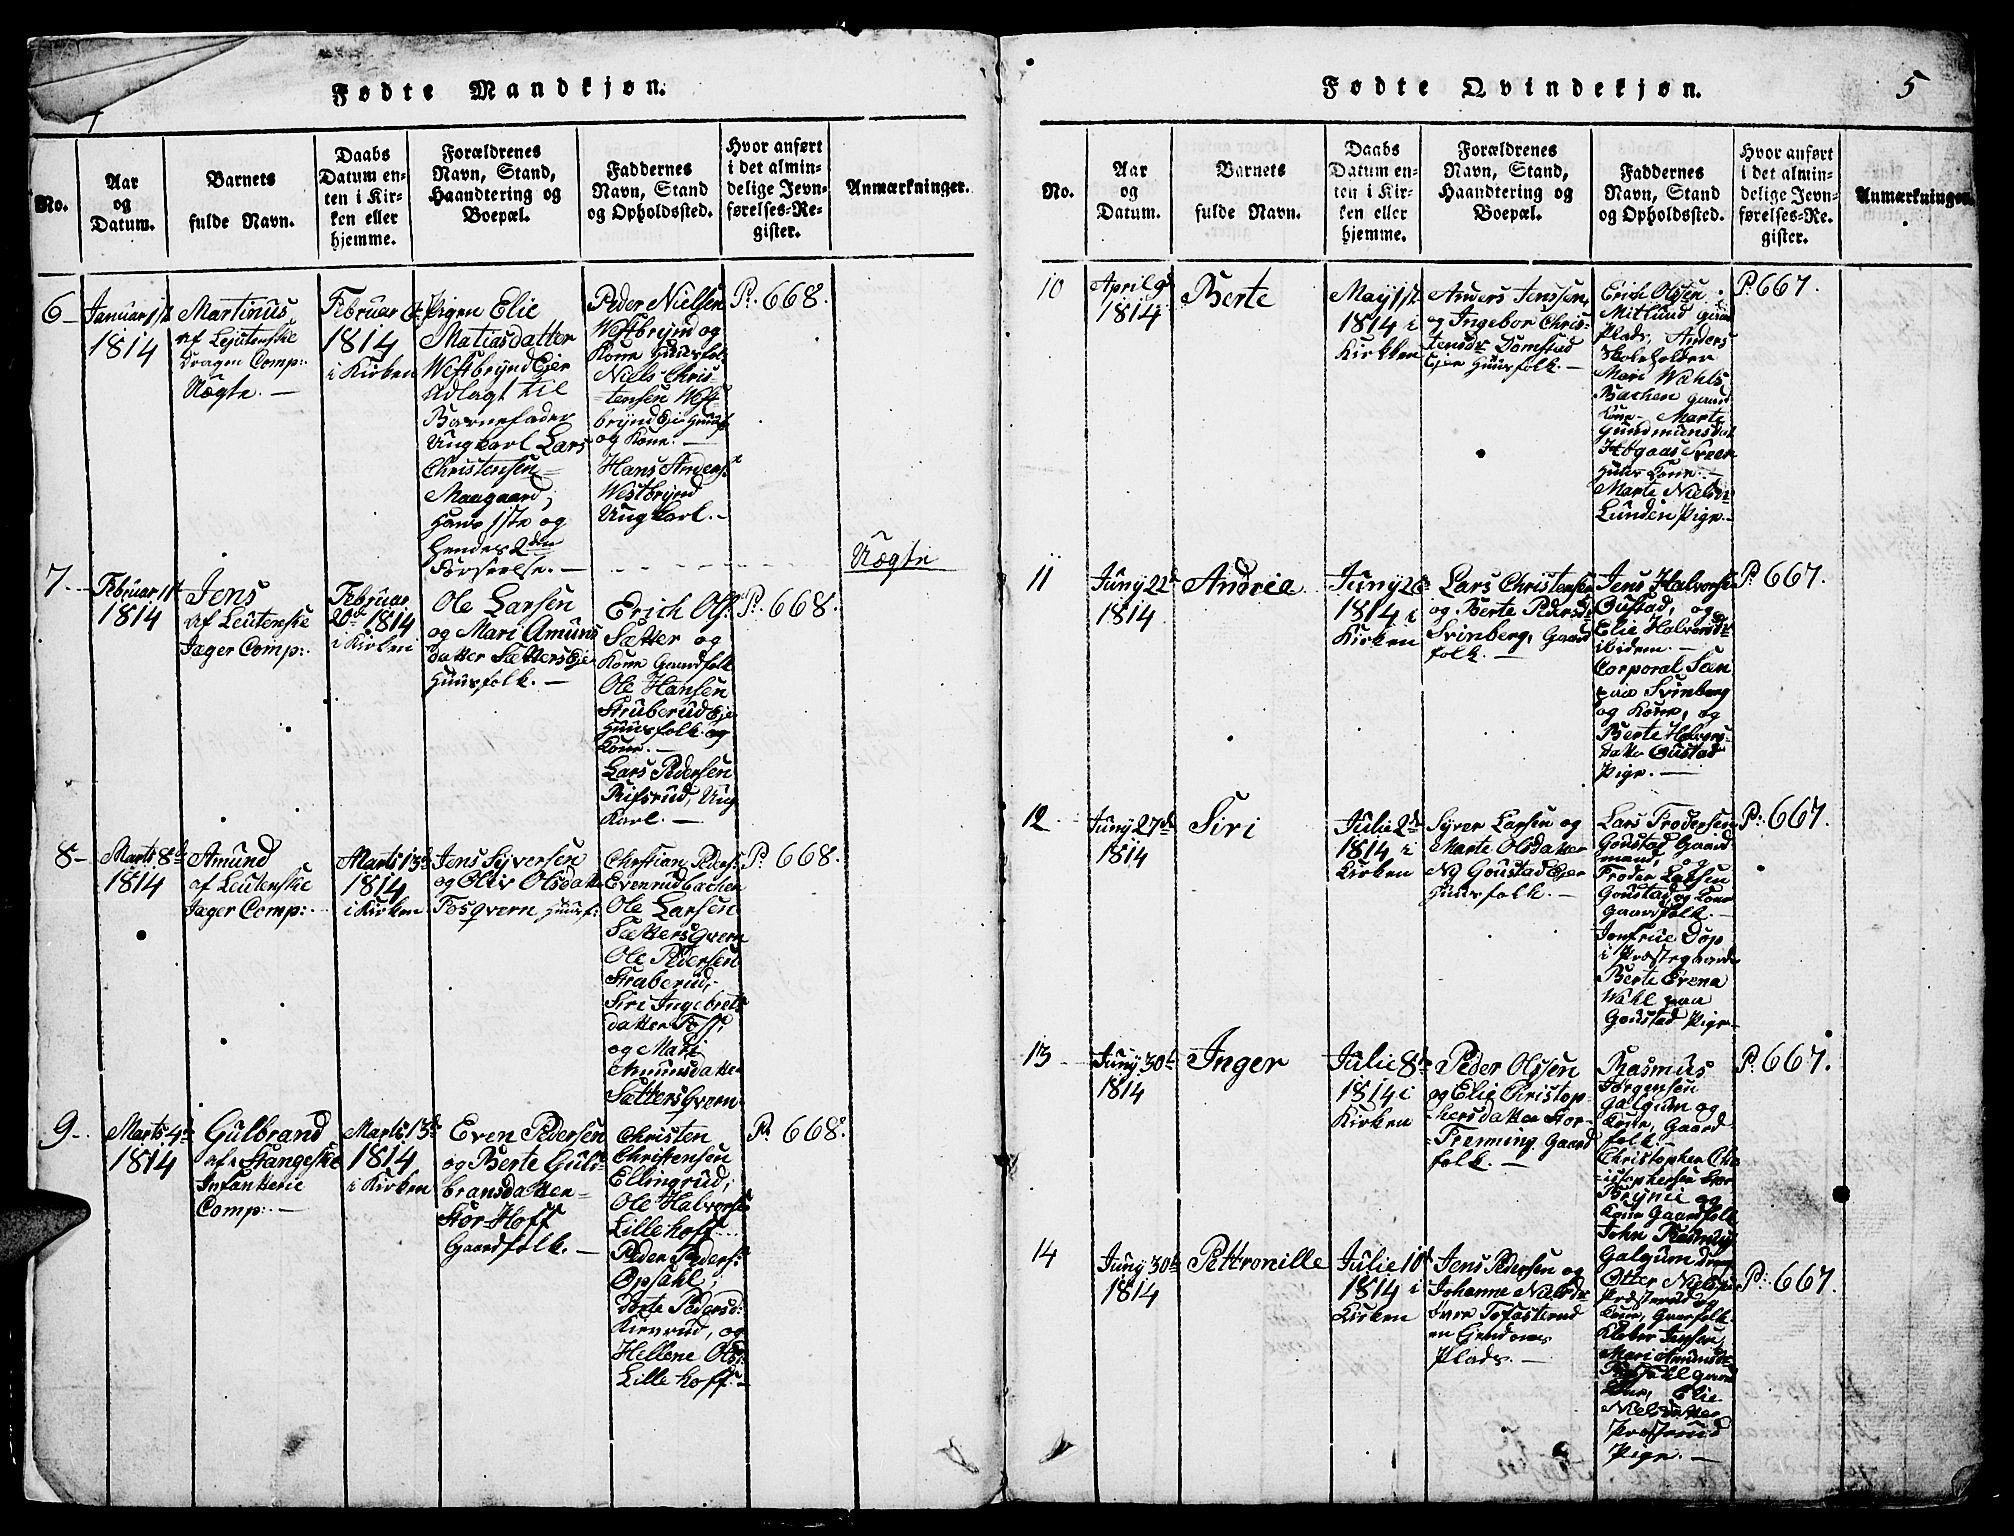 Fødte Mandkjøn.
No.
Aar
og
Datum.
Barnets
fulde Navn.
Daabs
Datum en-
ten i Kir-
ken eller
hjemme.
Forældrenes
Navn, Stand,
Haandtering og
Boepæl.
Faddernes
Navn, Stand
og Opholdssted.
Hvor anført
i det almin-
delige Jevn-
førelses-Re-
gister.
Anmærkninger.
6
Januar 1st
1814
Martinus,
af Lejutenske
Dragon Comp:
Uægte. —
Februar
1814
i Kirken
Pigen Elie
Matiasdatter
Westbrynd Ejer
Udlagt til
Barnefader
Ungkarl Lars
Christensen
Maagaard,
Hans 1ste og
Hendes 2den
Forseelse. —
Peder Nielsen
Westbrynd og
Kone Huusfol
Niels Chris-
tensen West
brynd Eje Huusf
og Kone. —
Hans Anders
Westbrynd
Ungkarl. —
P. 668.
Uægte
7
Februar 11t
1814
Jens
af Leutenske
Jæger Comp:
Februar
20de 1814
i Kirken
Ole Larsen
og Mari Amuns
datter Sætters Eje
Huusfolk. —
Erich Ols
Sætter og
Kone Gaardfolk
Ole Hansen
Struberud Eje
Huusfolk og
Kone. —
Lars Pedersen
Rifsrud, Ung
Karl. —
P. 668
8
Marts 8de
1814
Amund
af Leutenske
Jæger Comp:
Marts 13de
1814
i Kirken
Jens Syversen
og Oliv Olsdatt
Fosqvern Huusf:
Christian Peders
Evenrudbachen
Ole Larsen
Sættersqvern
Ole Pedersen
Straberud,
Siri Ingebrets
datter Foss,
og Mari
Amunsdatter
Sættersqvern
P. 668.
9
Marts 4de
1814
Gulbrand
af Stangeske
Infanterie
Comp: —
Marts 13de
1814
i Kirken
Even Pedersen
og Berte Gul-
bransdatter
Stor Hoff
Gaardfolk. —
Christen
Christensen
Ellingrud,
Ole Halvorse
Lillehoff
Peder Peders:
Opsahl,
Dorte Pedersd:
Kierrud, og
Hellene Ols:
Lille hoff. —
P. 668.
Fødte Qvindekjøn.
5
No.
Aar
og
Datum.
Barnets
fulde Navn.
Daabs
Datum en-
ten i Kir-
ken eller
hjemme.
Forældrenes
Navn, Stand,
Haandtering og
Boepæl.
Faddernes
Navn, Stand
og Opholdssted.
Hvor anført
i det almin-
delige Jevn-
førelses-Re-
gister.
Anmærkninger.
10
April 9d
1814
Berte
May 1st
1814 i
Kirkken
Anders Jenssen
og Ingebor Chris-
tensdr Domstad
Ejer Huusfolk. —
Erich Olssen
Mitlund
Plads, Anders
Skoleholder
Mari Wahls
Bachen Gaard
Kone — Marte
Gundmunsdat
Høgaas
Huus Kone. —
Marte Nielsdr
Lunden Pige. —
P. 667.
11
Juny 22d
1814
Andrea
Juny 26
1814 i
Kirken
Lars Christensen
og Berte Pedersd
Svinberg, Gaard
folk. —
Jens Halvorsen
Gustad, og
Elie Halvorsdr
ibidem. —
Corporal
Svinberg
og Kone, og
Berte Halvors-
datter Gustad
Pige. —
P. 667.
12
Juny 27de
1814
Siri
Julie 2de
1814 i
Kirken
Syver Larsen og
Marte Olsdatter
Ny Goustad Ejer
Huusfolk. —
Lars Frodersen
Goustad Gaard
mand,
Froder Larsen
Goustad, og Kone
Gaardfolk. —
Jonfrue Dop
i Præstegaarde
Berte Evena
Wahl paa
Goustad Pige —
P. 667.
13
Juny 30te
1814
Inger
Julie 8de
1814 i
Kirken
Peder Olssen
og Elie Christop-
hersdatter Stor-
Frenning Gaard
folk. —
Rasmus
Jørgensen
Galgum og
Kone, Gaard
folk. —
Christopher Chr
istophersen Stor
Brynie og
Kone Gaardfolk
John
Galgum dreng
P. 667.
14
Juny 30te
1814
Pettronille
Julie 10d
1814 i
Kirken
Jens Pedersen og
Johanne Nielsdr
øvre Tofastrud
en Ejendoms
Plads. —
Otter Nielsen
Præsterud og
Kone,
Mari Amunsdr
Gaard
Kone, Elie
Nielsdatter
Præsterud
Pige. —
P. 667.